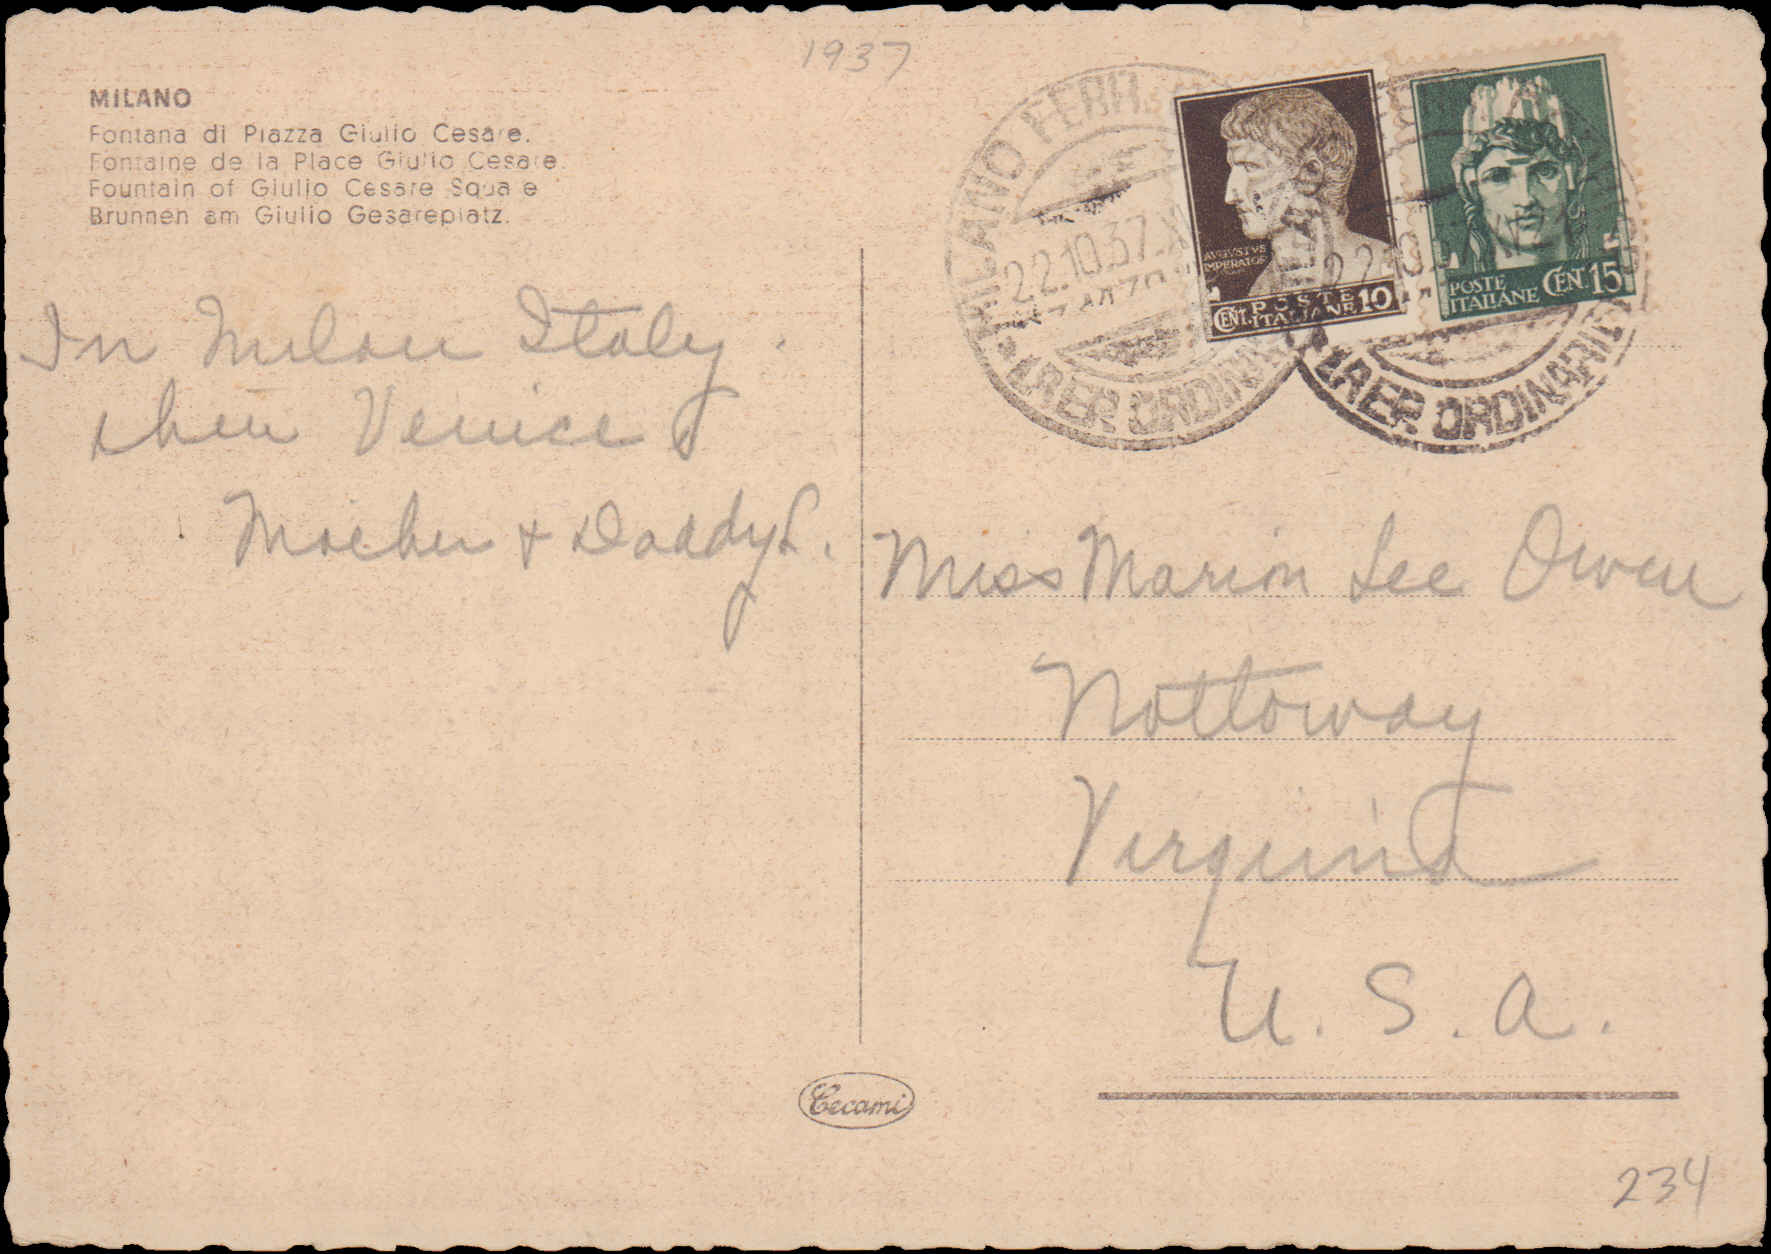 1937
MILANO
Fontana di Piazza Giulio Cesare.
Fontaine de la Place Giulio Cesare.
Fountain of Giulio Cesare Square
Brunnen am Giulio Gesareplatz.
MILANO FERR.
22.10.37.X
LAER ORDINAR
22.10
LAER ORDINARIO
AVGVSTVS
IMPERATOR
CENT. POSTE ITALIANE 10
POSTE ITALIANE CENT. 15
In Milan Italy.
then Venice
Mother + Daddy L.
Miss Marion Lee Owen
Nottoway
Virginia
U. S. A.
Cecami
234